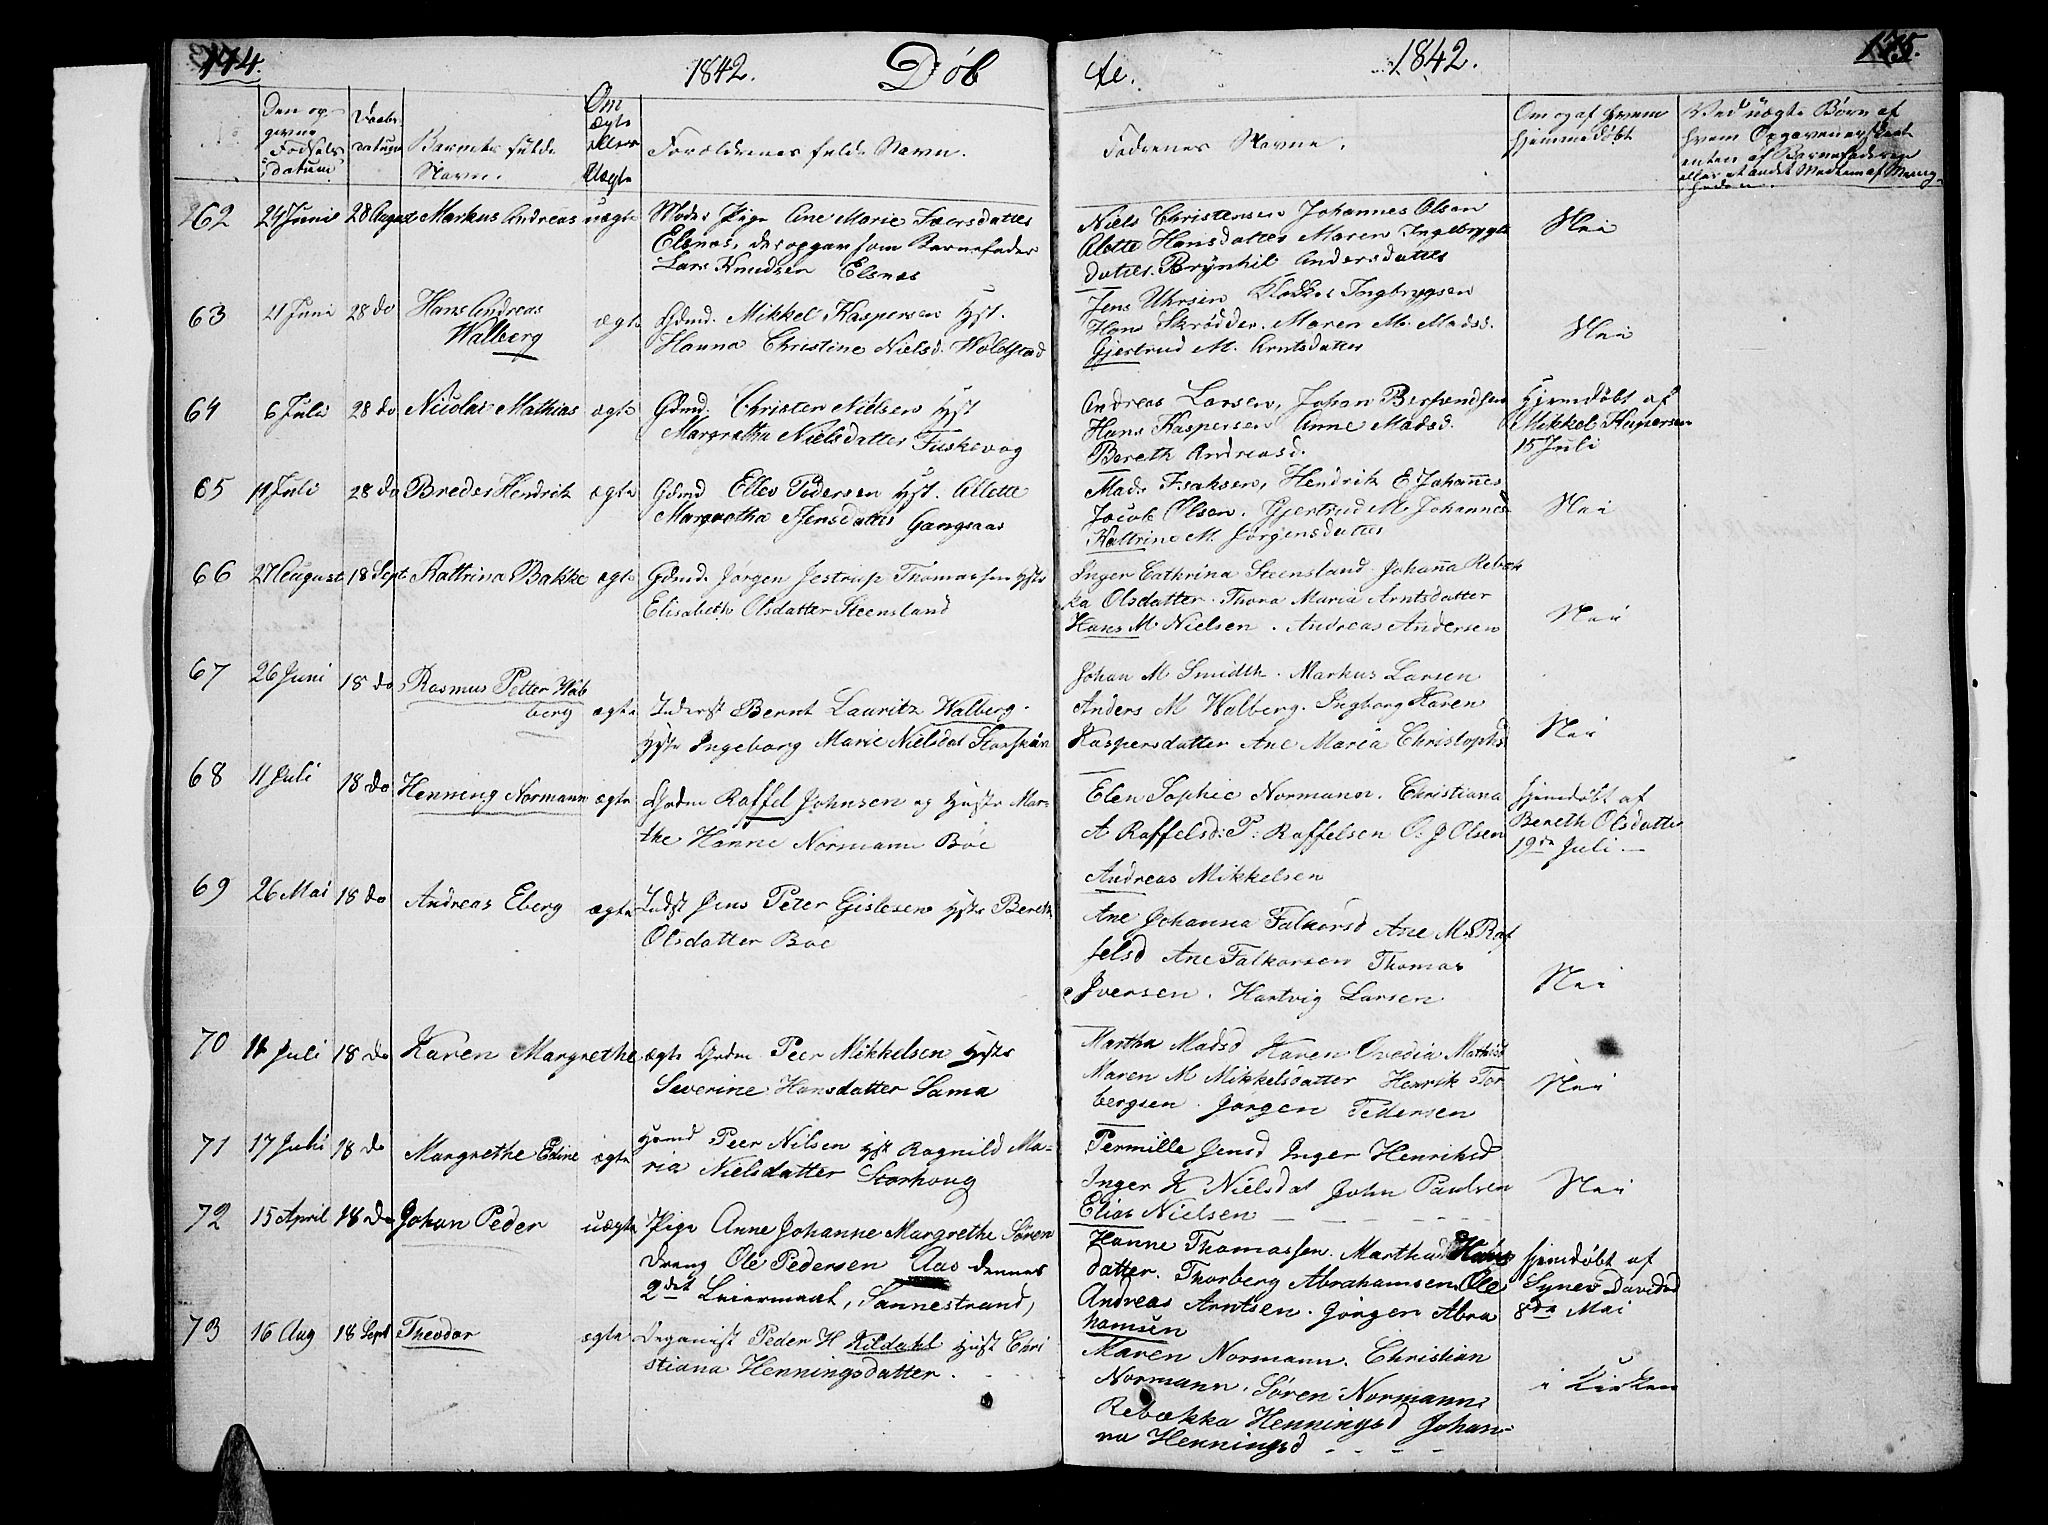 174.
1842.
Døb
te.
1842.
175.
Den op-
givne
Fødsels
datum
Daabs
datum
Barnets fulde
Navn.
Om
ægte
eller
Uægte
Forældrenes fulde Navn.
Faddernes Navne.
Om og af hvem
hjemmedøbt
Ved uægte Børn af
hvem Opgaven er skeet
enten af Barnefaderen
eller et andet Medlem af Menig-
heden.
62 24 Juni 28 August Markus Andreas uægte Moder Pige Ane Marie
Elsnæs, der opgav som Barnefader
Lars Knudsen Elsnæs
Niels Christensen Johannes Olsen
Alette Hansdatter Maren Ingebrygts
datter. Brynhil Andersdatter
Nei
63 21 Juni 28 do Hans Andreas
Walberg
ægte Gdmd. Mikkel Kaspersen Hst.
Hanna Christine Nielsd. Woldstad
Jens Uhrsin Klokker Ingbrygsen
Hans Skrødder. Maren M. Madsd.
Gjertrud M. Arntsdatter
Nei
64 6 Juli 28 do Nicolai Mathias ægte Gdmd. Christen Nielsen Hst
Margretha Nielsdatter Fuskevog
Andreas Larsen, Johan Berhendsen
Hans Kaspersen Anne Madsd.
Bereth Andreasd.
Hjemdøbt af
Mikkel Kapersen
15 Juli
65 11 Juli 28 do Breder Hendrik ægte Gdmd Ellev Pedersen Hst. Alette
Margretha Jensdatter Gangsaas
Mads Isaksen, Hendrik E Johannes
Jacob Olsen. Gjertrud M. Johannesd
Kattrine M. Jørgensdatter
Nei
66 27 August 18 Sept Kattrina Bakke ægte Gdmd. Jørgen Jestrup Thomassen Hstr
Elisabeth Olsdatter Steensland
Inger Cathrina Steensland. Johanna Rebek
ka Olsdatter. Thora Maria Arntsdatter
Hans M. Nielsen. Andreas Andersen
Nei
67 26 Juni 18 do Rasmus Petter Wal
berg
ægte Inderst Bernt Lauritz Walberg.
Hstr Ingeborg Marie Nielsdat
Johan M Smidth. Markus Larsen
Anders M Walberg. Ingborg Karen
Kaspersdatter Ane Maria Christophd
Nei
68 11 Juli 18 do Henning Normann ægte Grdm Raffel Johnsen og Hustr Mar-
the Hanne Normann Bøe
Elen Sophie Normann. Christiana
A Raffelsd: P: Raffelsen O. J Olsen
Andreas Mikkelsen
Hjemdøbt af
Bereth Olsdatter
19de Juli
69 26 Mai 18 do Andreas Eberg ægte Indst Jens Peter Gislesen Hstr Bereth
Olsdatter Boe
Ane Johanna Falkorsd Ane M. Raf
felsd Ane Falkorsen Thomas
Iversen. Hartvig Larsen
Nei
70 11 Juli 18 do Karen Margrethe ægte Grdm Peer Mikkelsen Hstr
Severine Hansdatter Sama
Martha Madsd Karen Ovedia Mathisd
Maren M Mikkelsdatter Henrik Tor
bergsen. Jørgen Pedersen
Nei
71 17 Juli 18 do Margrethe Edine ægte Hrmd Peer Nilsen Hst Ragnild Ma-
ria Nielsdatter Storhoug
Pernille Jensd Inger Henriksd
Inger K Nielsdat John Paulsen
Elias Nielsen
Nei
72 15 April 18 do Johan Peder uægte Pige Anne Johanne Margrethe Søren
Dreng Ole Pedersen Aas dennes
2det Leiermaal, Sannestrand,
Hanne Thomassen. Martha Hans
datter. Thorberg Abrahamsen. Ole
Andreas Arntsen. Jørgen Abra
hamsen
Hjemdøbt af
Synev Davidsd
8de Mai
73 16 Aug 18 Sept Theodor ægte Organist Peder H Kildahl Hust Chri
stiana Henningsdatter.
Maren Normann. Christian
Normann. Søren Normann.
Rebækka Henningsd Johan-
na Henningsd
i Kirken